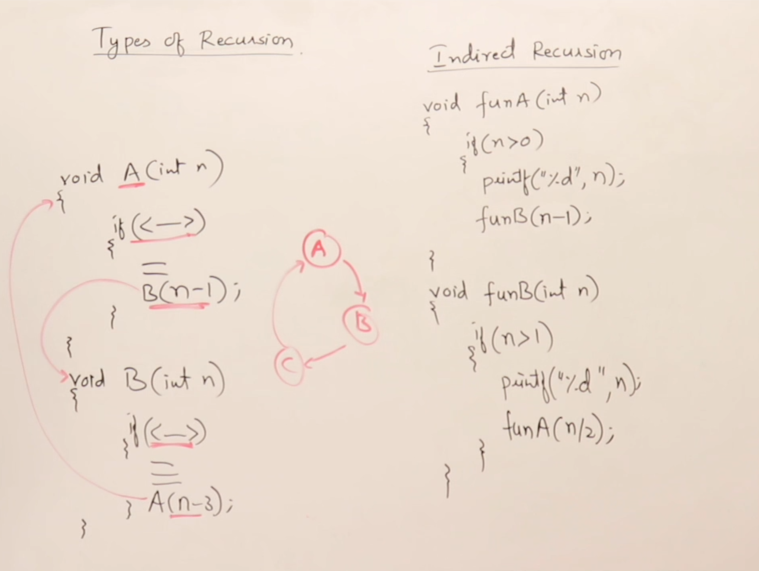 Types of Recursion.
void A(int n)
{
if(<—>)
{
B(n-1);
}
}
void B(int n)
{
if(<—>)
{
A(n-3);
}
}
A
B
C
Indirect Recursion
void funA(int n)
{
if(n>0)
{
printf("%d", n);
funB(n-1);
}
void funB(int n)
{
if(n>1)
{
printf("%d", n);
funA(n/2);
}
}